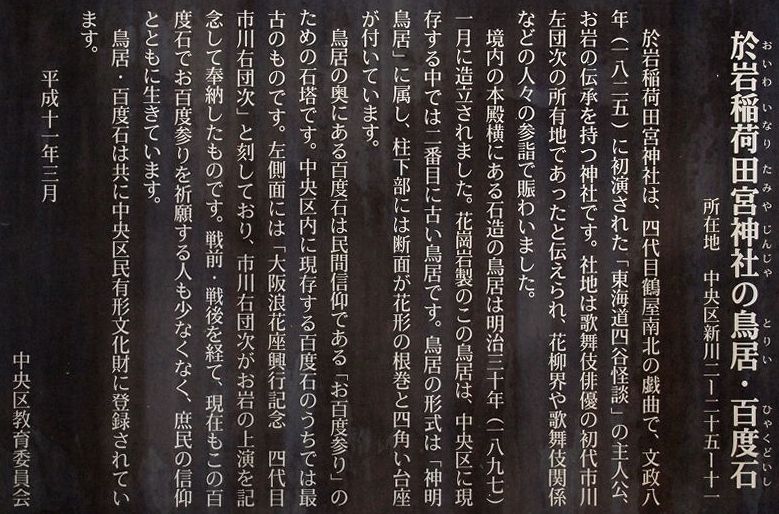 於岩稲荷田宮神社の鳥居・百度石
おいわいなりたみやじんじゃ とりい ひゃくどいし
所在地 中央区新川二ー二十五ー十一
於岩稲荷田宮神社は、四代目鶴屋南北の戯曲で、文政八
年(一八二五)に初演された「東海道四谷怪談」の主人公、
お岩の伝承を持つ神社です。社地は歌舞伎俳優の初代市川
左団次の所有地であったと伝えられ、花柳界や歌舞伎関係
などの人々の参詣で賑わいました。
境内の本殿横にある石造の鳥居は明治三十年(一八九七)
一月に造立されました。花崗岩製のこの鳥居は、中央区に現
存する中では二番目に古い鳥居です。鳥居の形式は「神明
鳥居」に属し、柱下部には断面が花形の根巻と四角い台座
が付いています。
鳥居の奥にある百度石は民間信仰である「お百度参り」の
ための石塔です。中央区内に現存する百度石のうちでは最
古のものです。左側面には「大阪浪花座興行記念 四代目
市川右団次」と刻しており、市川右団次がお岩の上演を記
念して奉納したものです。戦前・戦後を経て、現在もこの百
度石でお百度参りを祈願する人も少なくなく、庶民の信仰
とともに生きています。
鳥居・百度石は共に中央区民有形文化財に登録されてい
ます。
平成十一年三月
中央区教育委員会